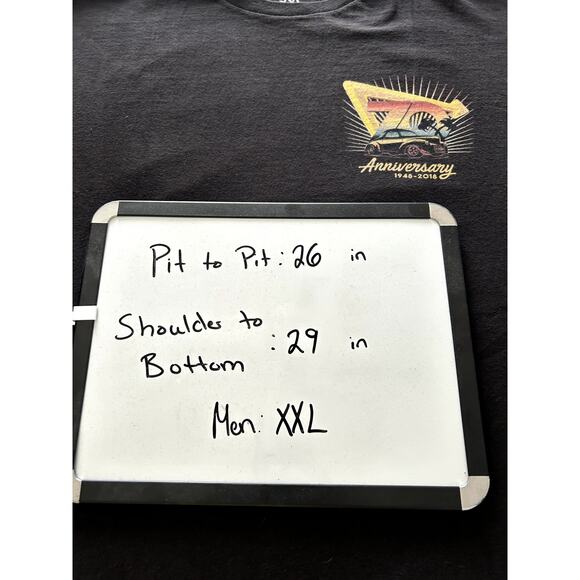 Anniversary
1948-2018
Pit to Pit: 26 in
Shoulder to
Bottom : 29 in
Men: XXL